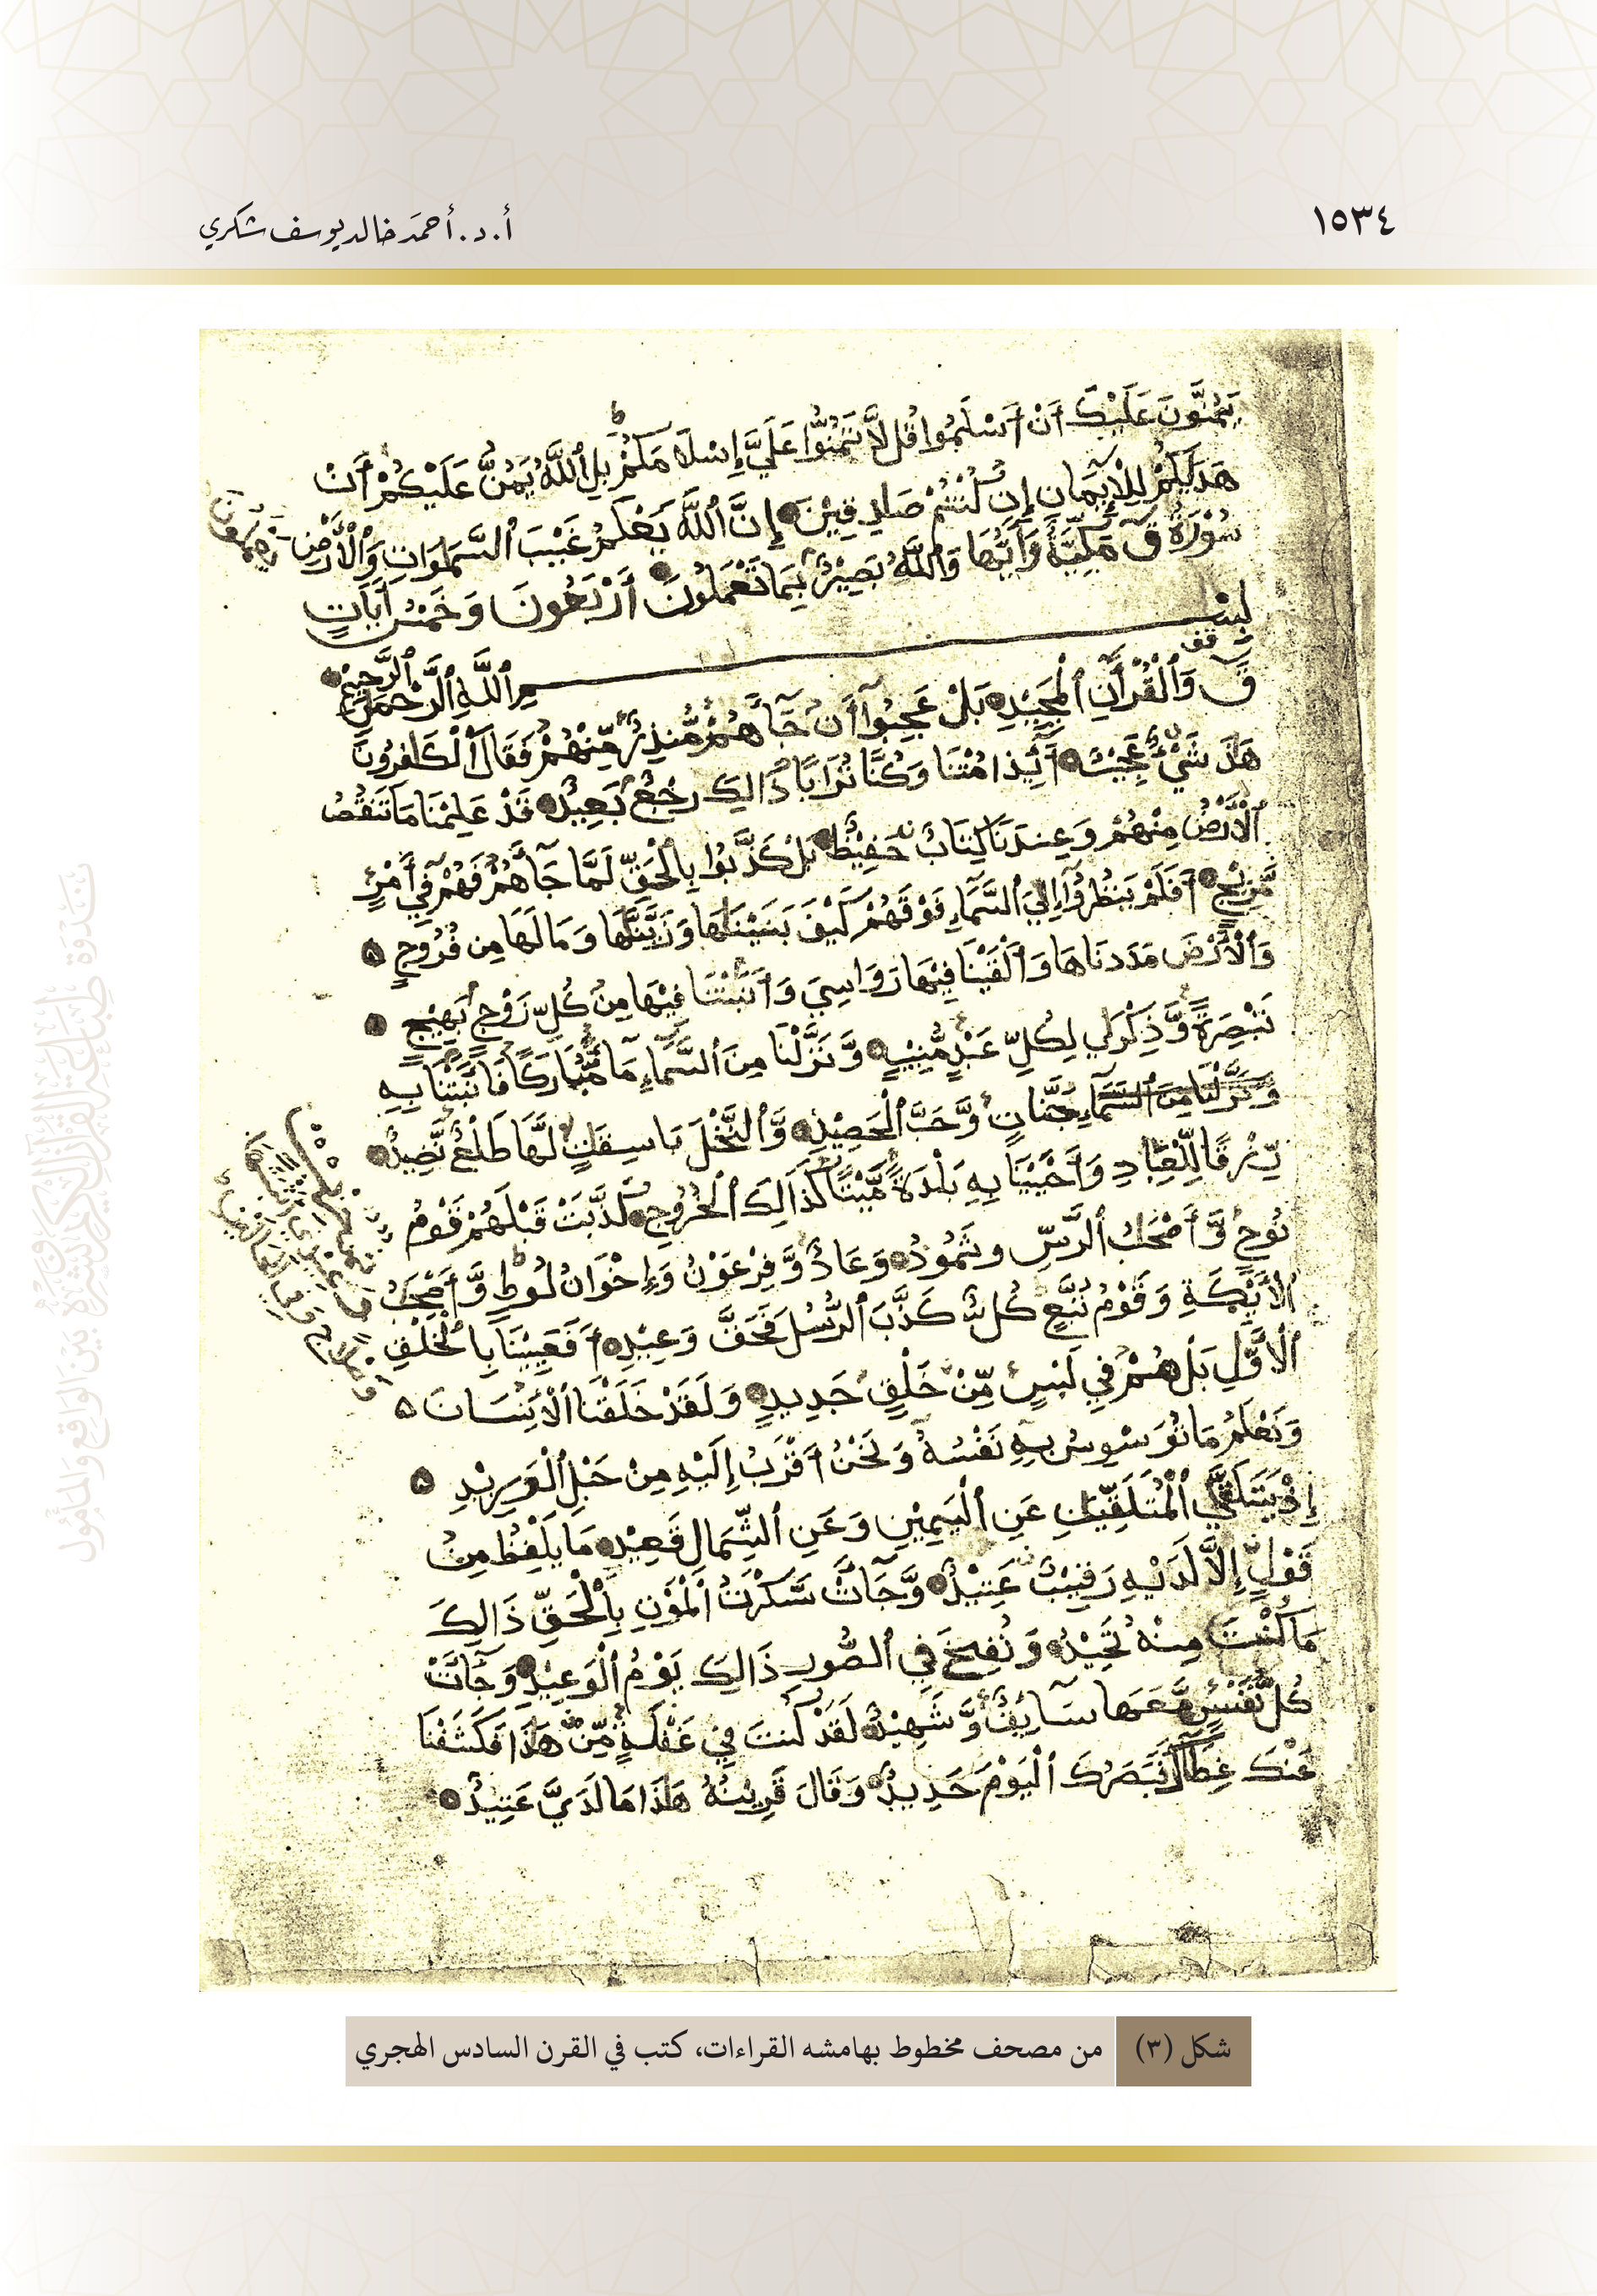 ١٥٣٤
أ.د. أحمَد خالد يوسف شكري
يَمُنُّونَ عَلَيْكَ أَنْ أَسْلَمُوا قُل لَّا تَمُنُّوا عَلَيَّ إِسْلَامَكُمْ بَلِ ٱللَّهُ يَمُنُّ عَلَيْكُمْ أَنْ
هَدَىكُمْ لِلْإِيمَانِ إِن كُنْتُمْ صَادِقِيْنَ إِنَّ ٱللَّهَ يَعْلَمُ غَيْبَ ٱلسَّمَوَاتِ وَٱلْأَرْضِ
سُوْرَةُ قٓ مَكِيَّةٌ وَآيُهَا وَٱللَّهُ بَصِيْرٌ بِمَا تَعْمَلُونَ أَرْبَعُونَ وَخَمْسُ آيَاتٍ
بِسْمِ ٱللَّهِ ٱلرَّحْمَنِ ٱلرَّحِيْمِ
قٓ وَٱلْقُرْآنِ ٱلْمَجِيْدِ بَلْ عَجِبُوٓا أَن جَآءَهُمْ مُّنذِرٌ مِّنْهُمْ فَقَالَ ٱلْكَافِرُونَ
هَذَا شَيْءٌ عَجِيْبٌ أَئِذَا مُتْنَا وَكُنَّا تُرَابًا ذَالِكَ رَجْعٌ بَعِيدٌ قَدْ عَلِمْنَا مَا تَنقُصُ
ٱلْأَرْضُ مِنْهُمْ وَعِندَنَا كِتَابٌ حَفِيْظٌ بَلْ كَذَّبُوا بِالْحَقِّ لَمَّا جَآءَهُمْ فَهُمْ فِيٓ أَمْرٍ
مَّرِيْجٍ أَفَلَمْ يَنظُرُوٓا إِلَى ٱلسَّمَآءِ فَوْقَهُمْ كَيْفَ بَنَيْنَاهَا وَزَيَّنَّاهَا وَمَا لَهَا مِن فُرُوجٍ
وَٱلْأَرْضَ مَدَدنَاهَا وَأَلْقَيْنَا فِيْهَا رَوَاسِيَ وَأَنبَتْنَا فِيْهَا مِن كُلِّ زَوْجٍ بَهِيْجٍ
تَبْصِرَةً وَّذِكْرَى لِكُلِّ عَبْدٍ مُّنِيْبٍ وَّنَزَّلْنَا مِنَ ٱلسَّمَآءِ مَآءً مُّبَارَكًا فَأَنْبَتْنَا بِهِ
وَنَزَّلْنَا مِنَ ٱلسَّمَآءِ جَنَّاتٍ وَّحَبَّ ٱلْحَصِيْدِ وَّٱلنَّخْلَ بَاسِقَاتٍ لَّهَا طَلْعٌ نَّضِيدٌ
رِّزْقًا لِّلْعِبَادِ وَأَحْيَيْنَا بِهِ بَلْدَةً مَّيْتًا كَذَالِكَ ٱلْخُرُوجِ كَذَّبَتْ قَبْلَهُمْ قَوْمُ
نُوحٍ وَّأَصْحَبُ ٱلرَّسِّ وثَمُودُ وَعَادٌ وَّفِرْعَوْنُ وَإِخْوَانُ لُوطٍ وَّأَصْحَبُ
ٱلْأَيْكَةِ وَقَوْمُ تُبَّعٍ كُلٌّ كَذَّبَ ٱلرُّسُلَ فَحَقَّ وَعِيْدِ أَفَعَيِيْنَا بِالْخَلْقِ
ٱلْأَوَّلِ بَلْ هُمْ فِي لَبْسٍ مِّنْ خَلْقٍ جَدِيدٍ وَلَقَدْ خَلَقْنَا ٱلْإِنْسَانَ
وَنَعْلَمُ مَا تُوَسْوِسُ بِهِ نَفْسُهُ وَنَحْنُ أَقْرَبُ إِلَيْهِ مِنْ حَبْلِ ٱلْوَرِيْدِ
إِذْ يَتَلَقَّى ٱلْمُتَلَقِّيَانِ عَنِ ٱلْيَمِيْنِ وَعَنِ ٱلشِّمَالِ قَعِيْدٌ مَا يَلْفِظُ مِنْ
قَوْلٍ إِلَّا لَدَيْهِ رَقِيْبٌ عَتِيْدٌ وَّجَآءَتْ سَّكْرَتُ ٱلْمَوْتِ بِالْحَقِّ ذَالِكَ
مَا كُنْتَ مِنْهُ تَحِيْدُ وَنُفِخَ فِي ٱلصُّورِ ذَالِكَ يَوْمُ ٱلْوَعِيْدِ وَجَآءَتْ
كُلُّ نَفْسٍ مَّعَهَا سَآئِقٌ وَّشَهِيْدٌ لَقَدْ كُنتَ فِي غَفْلَةٍ مِّنْ هَذَا فَكَشَفْنَا
عَنْكَ غِطَآءَكَ فَبَصَرُكَ ٱلْيَوْمَ حَدِيدٌ وَقَالَ قَرِيْنُهُ هَذَا مَا لَدَيَّ عَتِيدٌ
شكل (٣) من مصحف مخطوط بهامشه القراءات، كتب في القرن السادس الهجري
نَدْوَة طِبَاعَة القُرآن الكَرِيم وَنَشْرِهِ بَيْنَ الوَاقِعِ وَالمَأْمُول